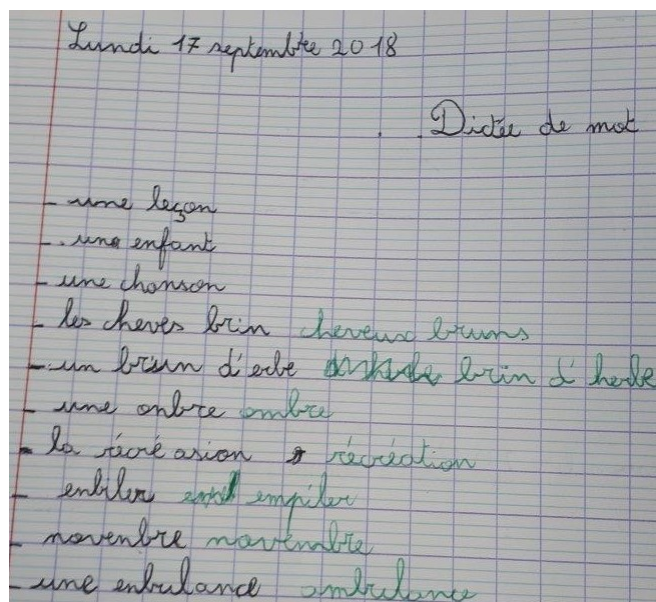 Lundi 17 septembre 2018
Dictée de mot
- une leçon
- une enfant
- une chonson
- les cheves brin cheveux bruns
- un brun d'erbe brin d'herbe
- une onbre ombre
- la récré asion récréation
- enbiler empiler
- novenbre novembre
- une enbulance ambulance